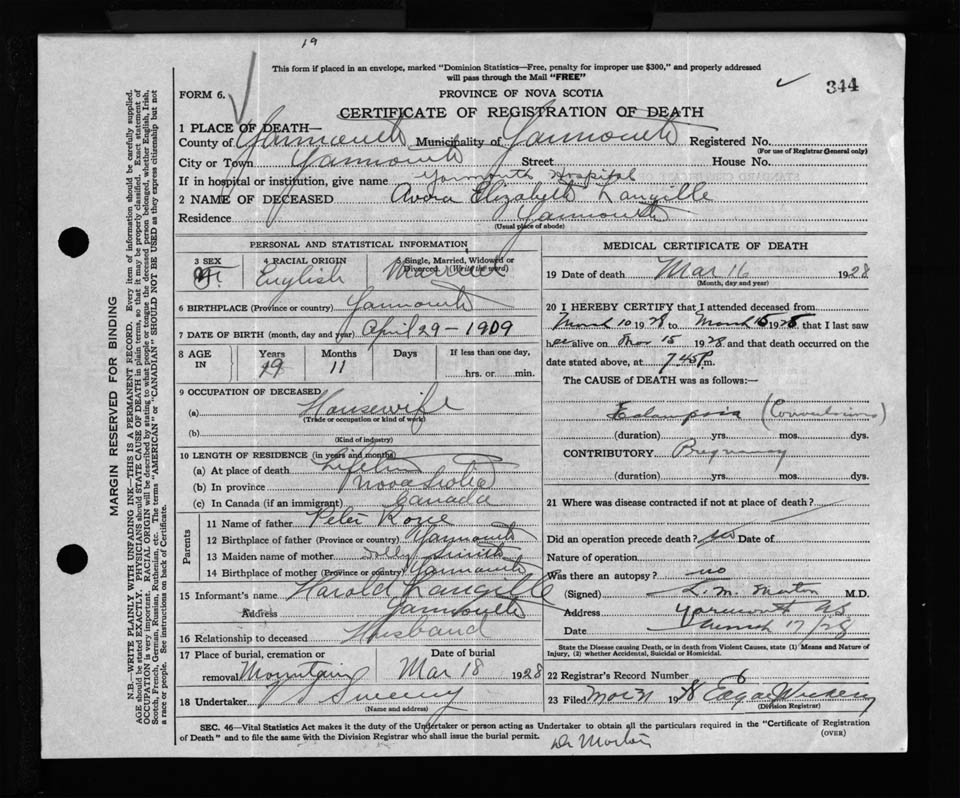 19
This form if placed in an envelope, marked "Dominion Statistics—Free, penalty for improper use $300," and properly addressed
will pass through the Mail "FREE"
344
FORM 6.
PROVINCE OF NOVA SCOTIA
CERTIFICATE OF REGISTRATION OF DEATH
1 PLACE OF DEATH—
County of Yarmouth Municipality of Yarmouth Registered No.
(For use of Registrar General only)
City or Town Yarmouth Street House No.
If in hospital or institution, give name Yarmouth Hospital
2 NAME OF DECEASED Avora Elizabeth Langille
Residence Yarmouth
(Usual place of abode)
PERSONAL AND STATISTICAL INFORMATION
3 SEX 4 RACIAL ORIGIN 5 Single, Married, Widowed or Divorced (Write the word)
F. English Married
6 BIRTHPLACE (Province or country) Yarmouth
7 DATE OF BIRTH (month, day and year) April 29 - 1909
8 AGE IN Years Months Days If less than one day,
19 11 hrs. or min.
9 OCCUPATION OF DECEASED
(a) Housewife
(Trade or occupation or kind of work)
(b)
(Kind of industry)
10 LENGTH OF RESIDENCE (in years and months)
(a) At place of death Lifetime
(b) In province Nova Scotia
(c) In Canada (if an immigrant) Canada
Parents
11 Name of father Peter
12 Birthplace of father (Province or country) Yarmouth
13 Maiden name of mother Dolly Smith
14 Birthplace of mother (Province or country) Yarmouth
15 Informant's name Harold Langille
Address Yarmouth
16 Relationship to deceased Husband
17 Place of burial, cremation or removal Mountain Date of burial Mar 18 1928
18 Undertaker Sweeny
(Name and address)
MEDICAL CERTIFICATE OF DEATH
19 Date of death Mar 16 1928
(Month, day and year)
20 I HEREBY CERTIFY that I attended deceased from
March 10 1928 to March 15 1928, that I last saw
her alive on Mar 15 1928 and that death occurred on the
date stated above, at 7.45 P.m.
The CAUSE of DEATH was as follows:—
Eclampsia (Convulsions)
(duration) yrs. mos. dys.
CONTRIBUTORY Pregnancy
(duration) yrs. mos. dys.
21 Where was disease contracted if not at place of death?
Did an operation precede death? no Date of
Nature of operation
Was there an autopsy? no
(Signed) L.M. Morton M.D.
Address Yarmouth NS
Date March 17/28
State the Disease causing Death, or in death from Violent Causes, state (1) Means and Nature of
Injury, (2) whether Accidental, Suicidal or Homicidal.
22 Registrar's Record Number 6
23 Filed Mar 31 1928 Edgar
(Division Registrar)
SEC. 46—Vital Statistics Act makes it the duty of the Undertaker or person acting as Undertaker to obtain all the particulars required in the "Certificate of Registration
of Death" and to file the same with the Division Registrar who shall issue the burial permit.
(OVER)
Dr Morton
MARGIN RESERVED FOR BINDING
N.B.—WRITE PLAINLY WITH UNFADING INK—THIS IS A PERMANENT RECORD. Every item of information should be carefully supplied.
AGE should be stated EXACTLY. PHYSICIANS should STATE CAUSE OF DEATH in plain terms, so that it may be properly classified. Exact statement of
OCCUPATION is very important. RACIAL ORIGIN will be described by stating to what people or tongue the deceased person belonged, whether English, Irish,
Scotch, French, German, Russian, Ruthenian, etc. The terms "AMERICAN" or "CANADIAN" SHOULD NOT BE USED as they express citizenship but not
a race or people. See instructions on back of Certificate.